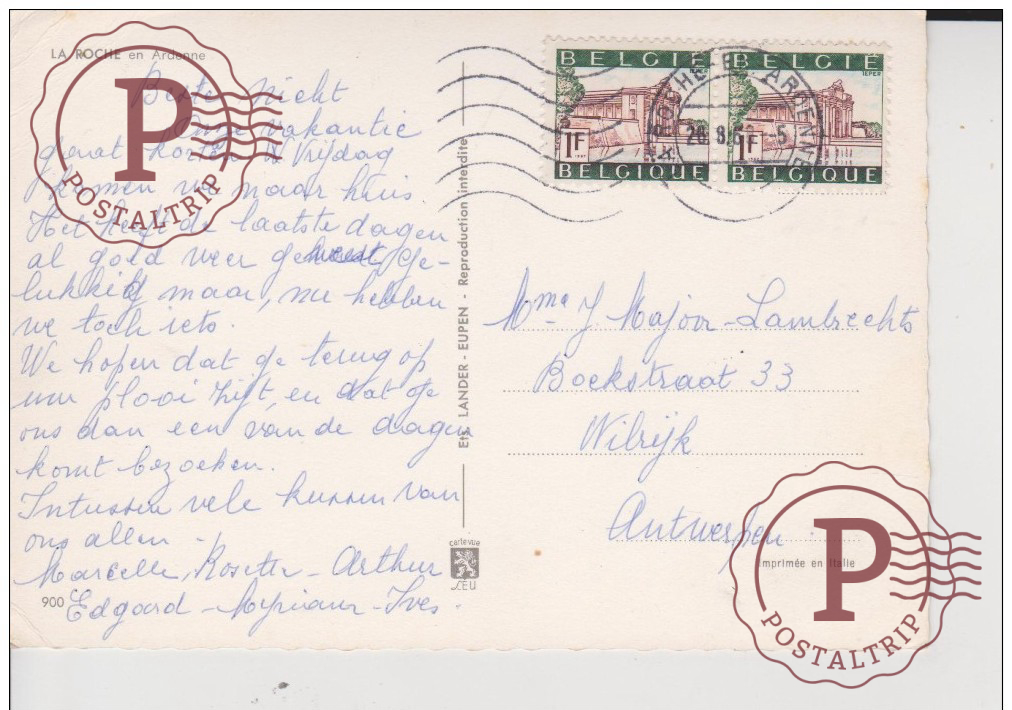 LA ROCHE en Ardenne
Beste Nicht
Onze vakantie
gaat korten Vrijdag
komen we naar huis.
Het heeft de laatste dagen
al goed weer geweest, Ge-
lukkig maar, nu hebben
we toch iets.
We hopen dat ge terug op
uw plooi zijt, en dat ge
ons dan een van de dagen
komt bezoeken.
Intussen vele kussen van
ons allen -
Marcelle, Rosette - Arthur
Edgard - Myriam - Ives.
900
Ets. LANDER - EUPEN - Reproduction interdite
cartevue
LEU
BELGIË
IEPER
1F
BELGIQUE
BELGIË
IEPER
1F
BELGIQUE
LA ROCHE-EN-ARDENNE
Mme J. Majoor-Lambrechts
Boekstraat 33
Wilrijk
Antwerpen
Imprimée en Italie
P
POSTALTRIP
P
POSTALTRIP